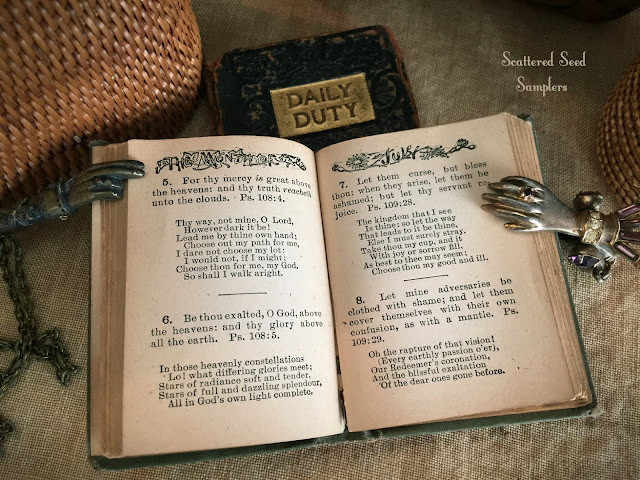 Scattered Seed
Samplers
DAILY
DUTY
The Month of
5. For thy mercy is great above
the heavens: and thy truth reacheth
unto the clouds. Ps. 108:4.
Thy way, not mine, O Lord,
However dark it be!
Lead me by thine own hand;
Choose out my path for me,
I dare not choose my lot:
I would not, if I might;
Choose thou for me, my God,
So shall I walk aright.
6. Be thou exalted, O God, above
the heavens: and thy glory above
all the earth. Ps. 108:5.
In those heavenly constellations
Lo! what differing glories meet;
Stars of radiance soft and tender,
Stars of full and dazzling splendour,
All in God's own light complete.
July
7. Let them curse, but bless
thou: when they arise, let them be
ashamed; but let thy servant re-
joice. Ps. 109:28.
The kingdom that I see
Is thine; so let the way
That leads to it be thine,
Else I must surely stray.
Take thou my cup, and it
With joy or sorrow fill,
As best to thee may seem;
Choose thou my good and ill.
8. Let mine adversaries be
clothed with shame; and let them
cover themselves with their own
confusion, as with a mantle. Ps.
109:29.
Oh the rapture of that vision!
(Every earthly passion o'er),
Our Redeemer's coronation,
And the blissful exaltation
Of the dear ones gone before.